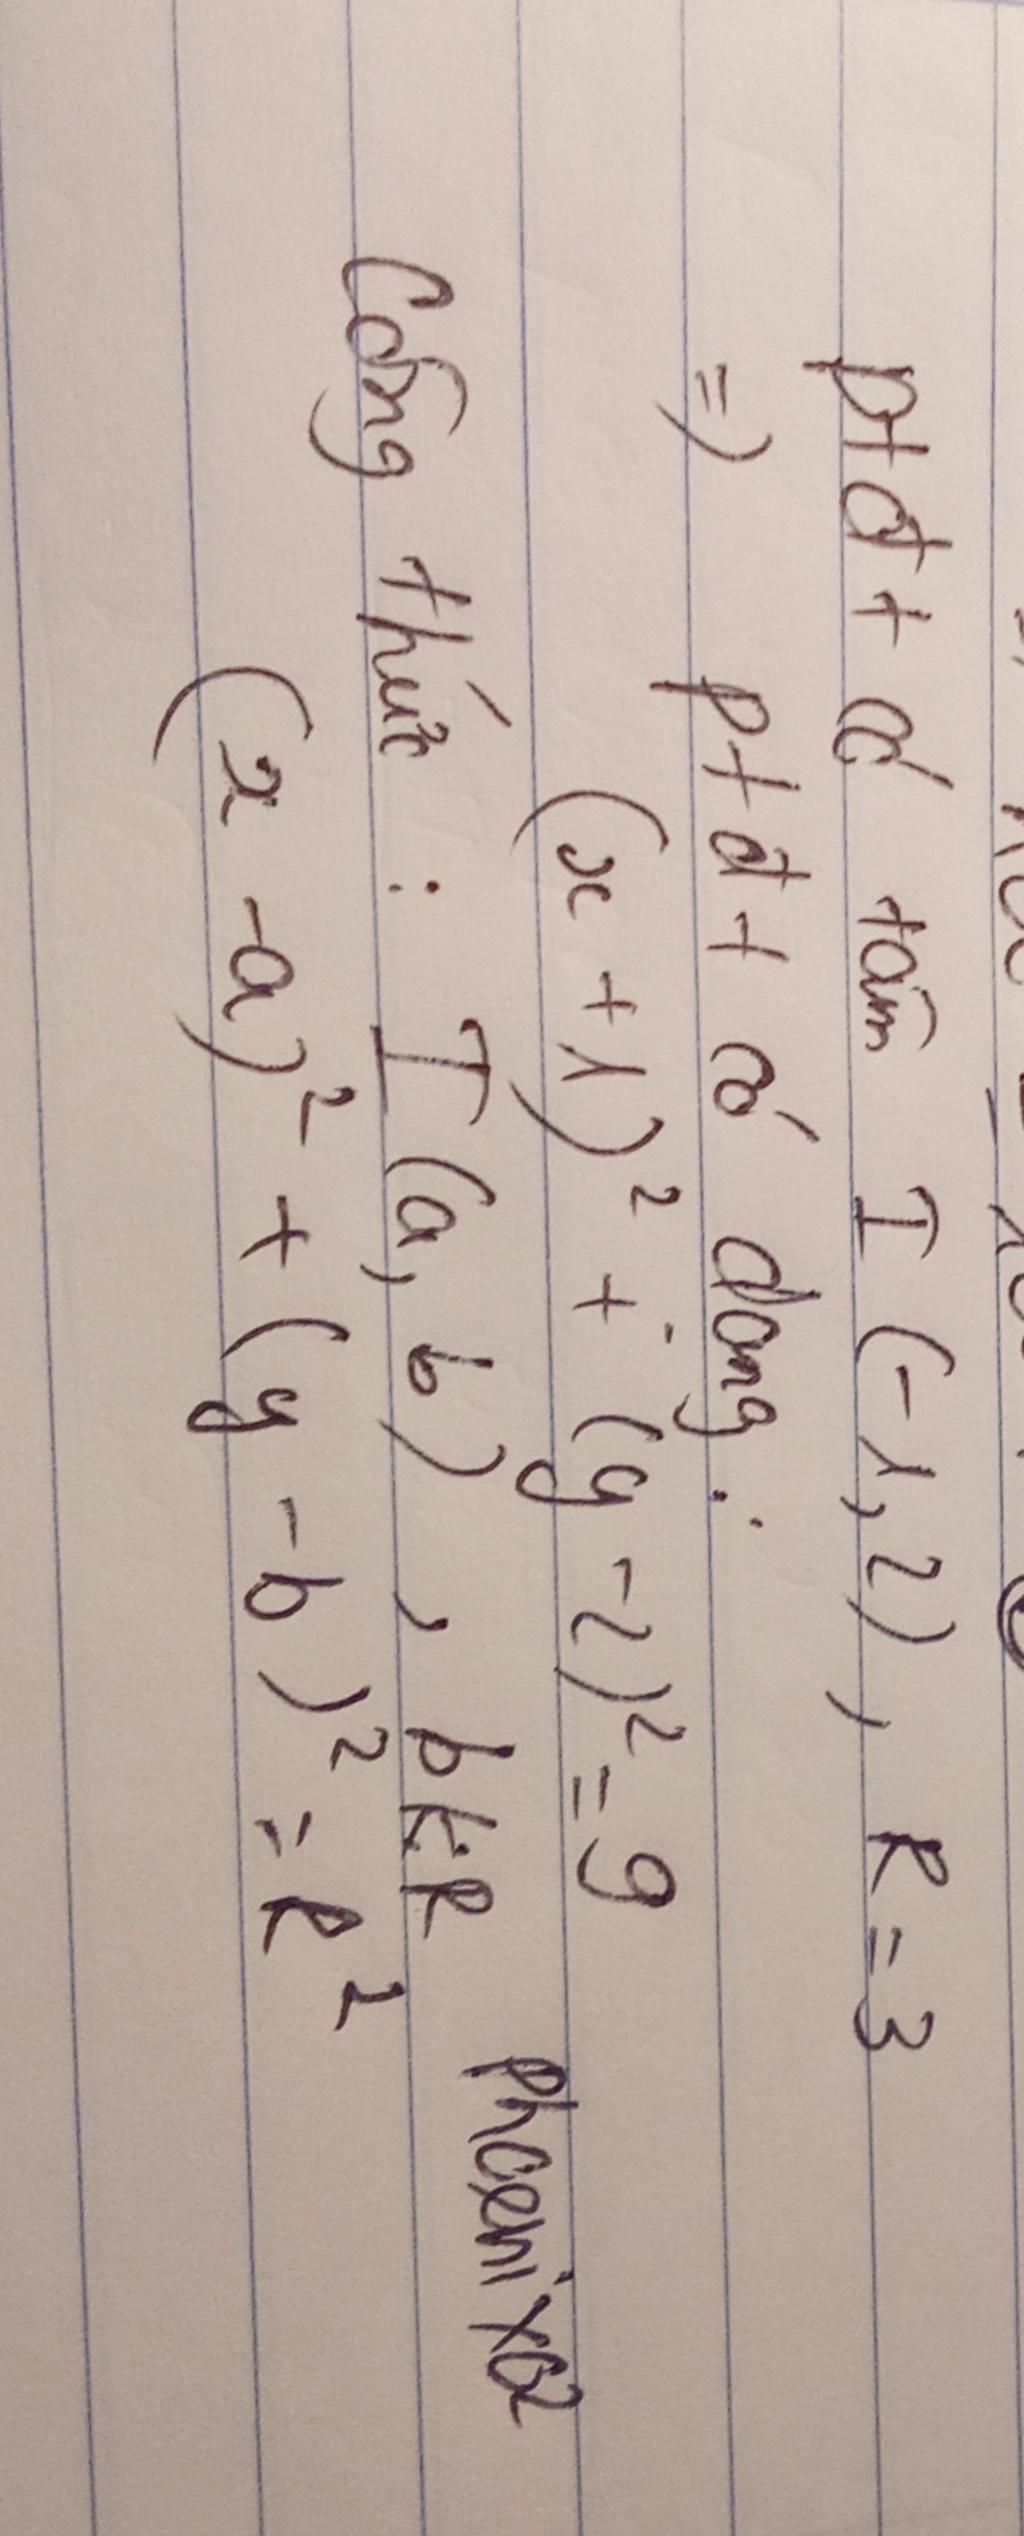 ptđt có tâm I (-1,2), R=3
=) ptđt có dạng:
(x +1)² + (y -2)² = 9
Công thức: I (a, b), bk:R
(x -a)² + (y -b)² = R²
Phoenix02